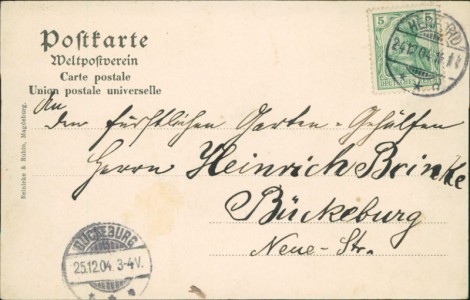 Postkarte
Weltpostverein
Carte postale
Union postale universelle
5
DEUTSCHES
HERFORD
24.12.04
An
den fürstlichen Garten-Gehülfen
Herrn Heinrich Brinke
Bückeburg
Neue-Str.
BÜCKEBURG
25.12.04. 3-4V.
Reinicke & Rubin, Magdeburg.